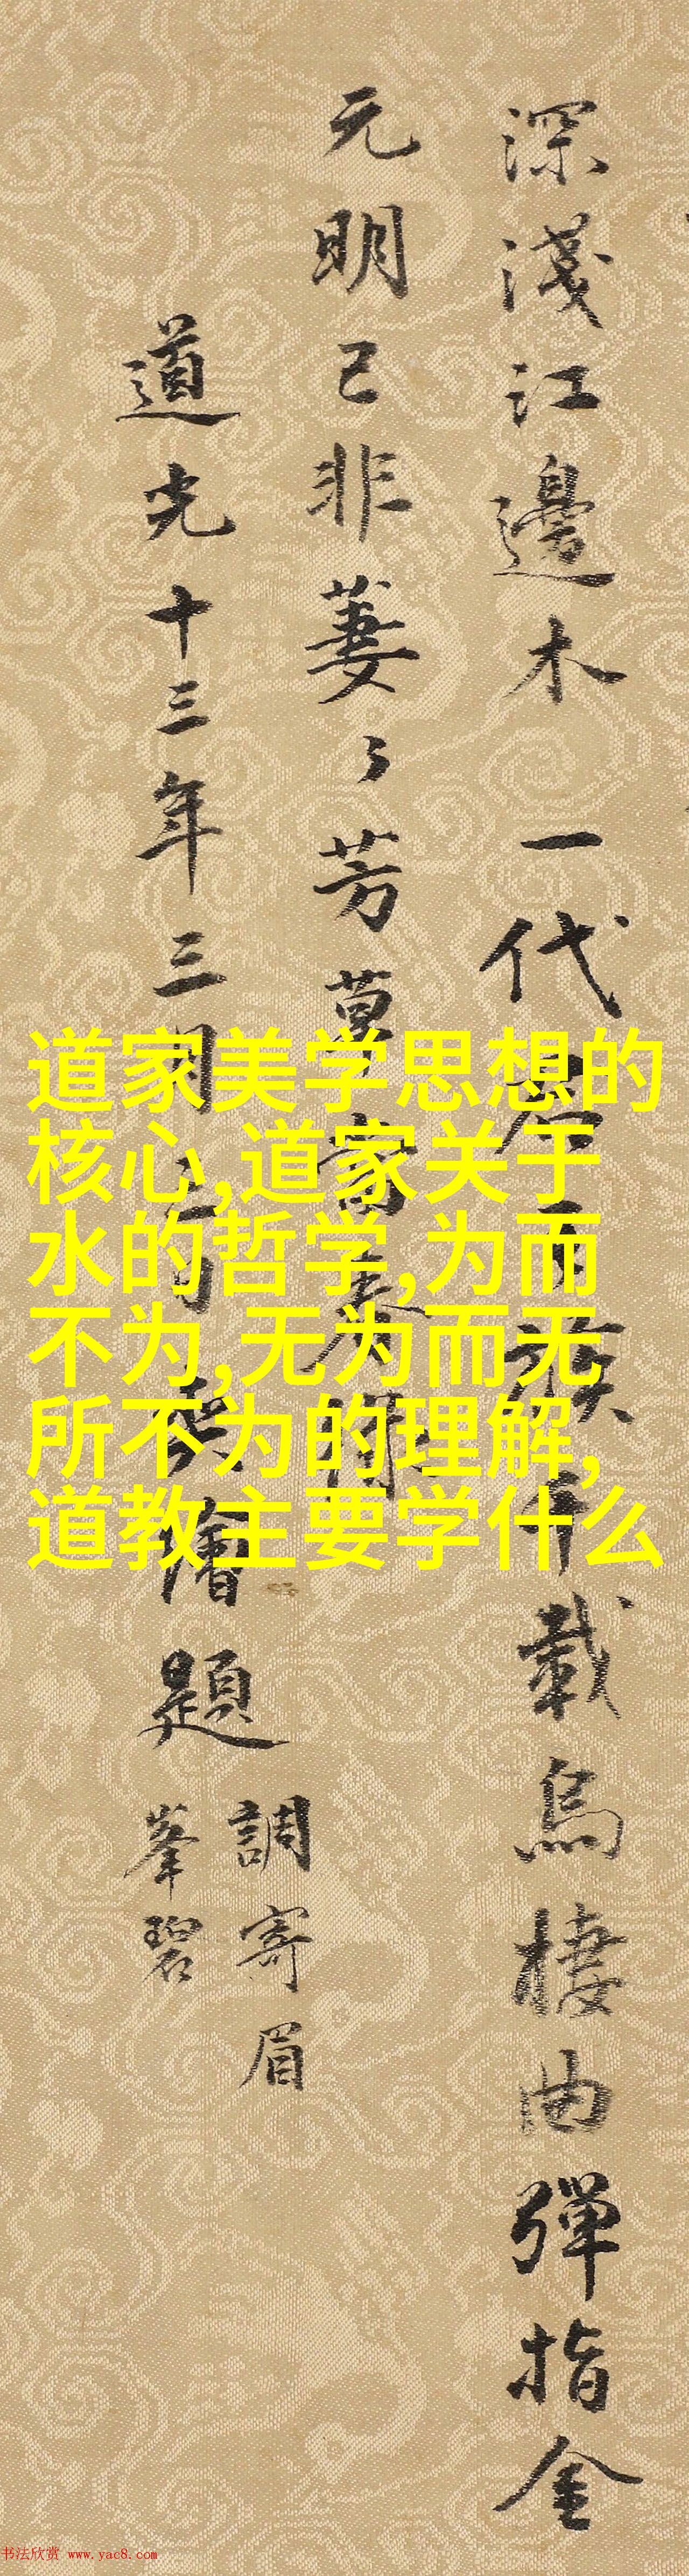 深淺江邊木 一代名百族千載烏棲曲彈指金
元明已非萋〻芳草當春閒
道光十三年三月
繪題
調寄眉
峯碧
道家美学思想的
核心,道家关于
水的哲学,为而
不为,无为而无
所不为的理解,
道教主要学什么
书法欣赏 www.yac8.com